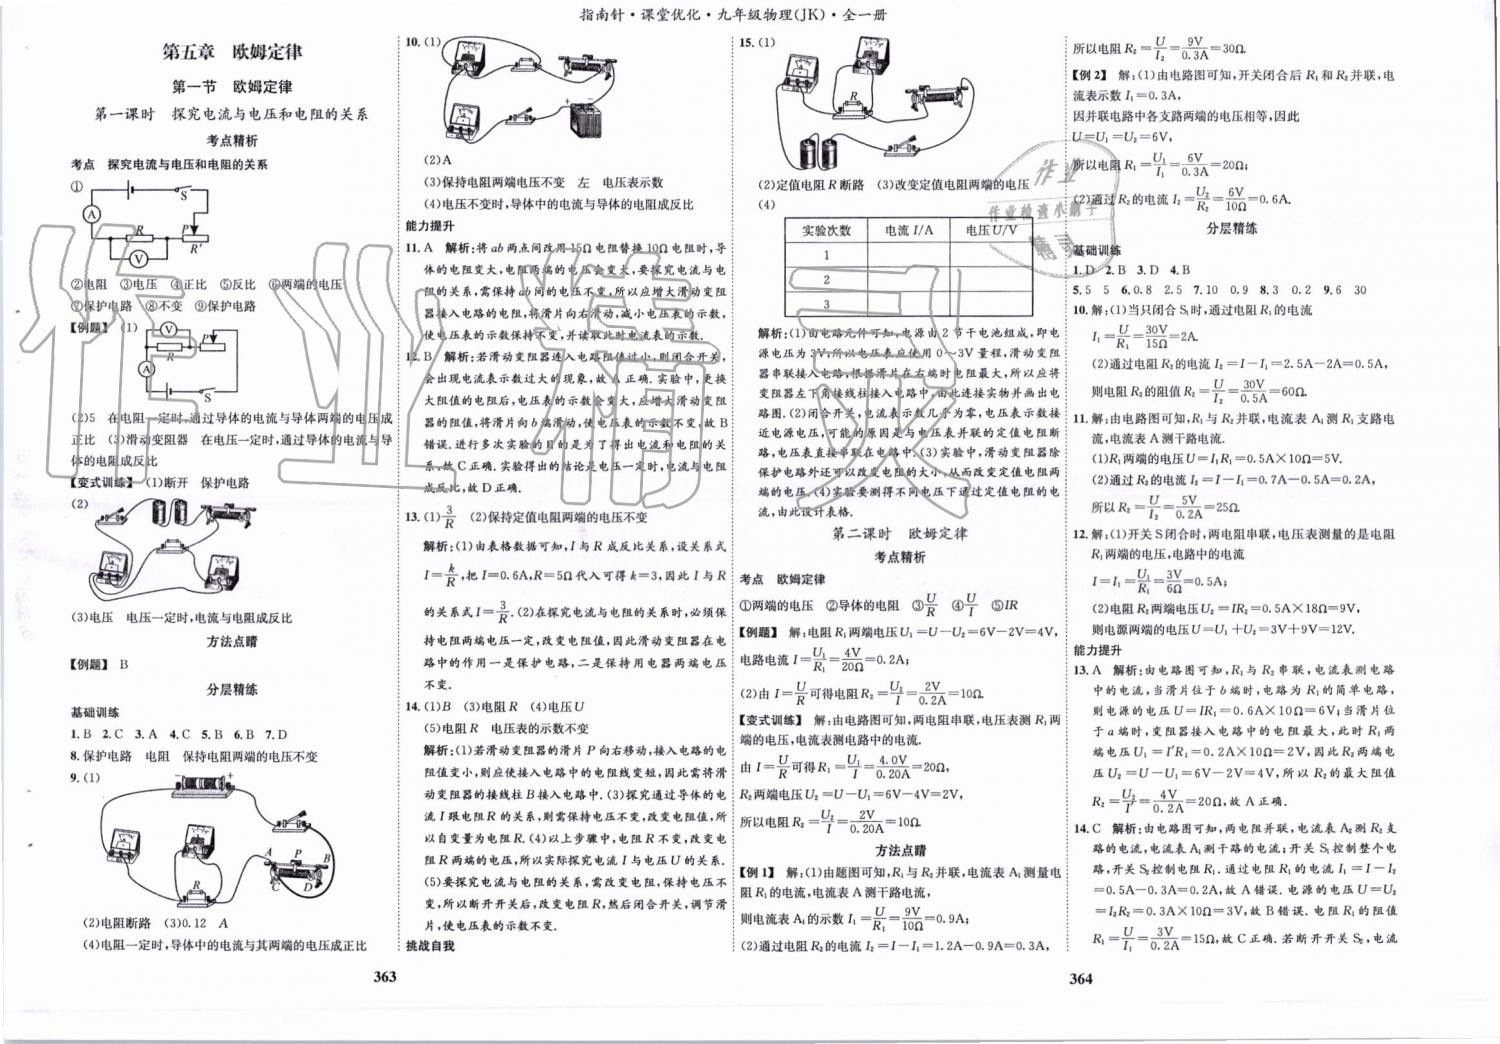 指南针·课堂优化·九年级物理(JK)·全一册
第五章 欧姆定律
第一节 欧姆定律
第一课时 探究电流与电压和电阻的关系
考点精析
考点 探究电流与电压和电阻的关系
①
S
A
R
P
R′
V
②电阻 ③电压 ④正比 ⑤反比 ⑥两端的电压
⑦保护电路 ⑧不变 ⑨保护电路
【例题】 (1)
V
P
R
A
S
(2)5 在电阻一定时,通过导体的电流与导体两端的电压成
正比 (3)滑动变阻器 在电压一定时,通过导体的电流与导
体的电阻成反比
【变式训练】 (1)断开 保护电路
(2)
(3)电压 电压一定时,电流与电阻成反比
方法点睛
【例题】 B
分层精练
基础训练
1.B 2.C 3.A 4.C 5.B 6.B 7.D
8.保护电路 电阻 保持电阻两端的电压不变
9.(1)
A P B
C D
R
(2)电阻断路 (3)0.12 A
(4)电阻一定时,导体中的电流与其两端的电压成正比
363
10.(1)
(2)A
(3)保持电阻两端电压不变 左 电压表示数
(4)电压不变时,导体中的电流与导体的电阻成反比
能力提升
11.A 解析:将ab两点间改用15Ω电阻替换10Ω电阻时,导
体的电阻变大,电阻两端的电压会变大,要探究电流与电
阻的关系,需保持ab间的电压不变,所以应增大滑动变阻
器接入电路的电阻,将滑片向右滑动,减小电压表的示数,
使电压表的示数保持不变,并读取此时电流表的示数.
12.B 解析:若滑动变阻器连入电路阻值过小,则闭合开关,
会出现电流表示数过大的现象,故A正确.实验中,更换
大阻值的电阻后,电压表的示数会变大,应增大滑动变阻
器的阻值,将滑片向b端滑动,使电压表的示数不变,故B
错误.进行多次实验的目的是为了得出电流和电阻的关
系,故C正确.实验得出的结论是电压一定时,电流与电阻
成反比,故D正确.
13.(1)3/R (2)保持定值电阻两端的电压不变
解析:(1)由表格数据可知,I与R成反比关系,设关系式
I=k/R,把I=0.6A,R=5Ω代入可得k=3,因此I与R
的关系式I=3/R.(2)在探究电流与电阻的关系时,必须保
持电阻两端电压一定,改变电阻值,因此滑动变阻器在电
路中的作用一是保护电路,二是保持用电器两端电压
不变.
14.(1)B (3)电阻R (4)电压U
(5)电阻R 电压表的示数不变
解析:(1)若滑动变阻器的滑片P向右移动,接入电路的电
阻值变小,则应使接入电路中的电阻线变短,因此需将滑
动变阻器的接线柱B接入电路中.(3)探究通过导体的电
流I跟电阻R的关系,则需保持电压不变,改变电阻值,所
以自变量为电阻R.(4)以上步骤中,电阻R不变,改变电
阻R两端的电压,所以实际探究电流I与电压U的关系.
(5)要探究电流与电阻的关系,需改变电阻,保持电压不
变,所以断开开关后,改变电阻R,然后闭合开关,调节滑
片,使电压表的示数不变.
挑战自我
15.(1)
R
(2)定值电阻R断路 (3)改变定值电阻两端的电压
(4)
实验次数 电流I/A 电压U/V
1
2
3
解析:(1)由电路元件可知,电源由2节干电池组成,即电
源电压为3V,所以电压表应使用0～3V量程,滑动变阻
器串联接入电路,根据滑片在右端时电阻最大,所以应将
变阻器左下角接线柱接入电路中,由此连接实物并画出电
路图.(2)闭合开关,电流表示数几乎为零,电压表示数接
近电源电压,可能的原因是与电压表并联的定值电阻断
路,电压表直接串联在电路中.(3)实验中,滑动变阻器除
保护电路外还可以改变电阻的大小,从而改变定值电阻两
端的电压.(4)实验要测得不同电压下通过定值电阻的电
流,由此设计表格.
第二课时 欧姆定律
考点精析
考点 欧姆定律
①两端的电压 ②导体的电阻 ③U/R ④U/I ⑤IR
【例题】 解:电阻R₁两端电压U₁=U−U₂=6V−2V=4V,
电路电流I=U₁/R₁=4V/20Ω=0.2A;
(2)由I=U/R可得电阻R₂=U₂/I=2V/0.2A=10Ω.
【变式训练】 解:由电路图可知,两电阻串联,电压表测R₁两
端的电压,电流表测电路中的电流.
由I=U/R可得R₁=U₁/I=4.0V/0.20A=20Ω,
R₂两端电压U₂=U−U₁=6V−4V=2V,
所以电阻R₂=U₂/I=2V/0.20A=10Ω.
方法点睛
【例1】 解:(1)由题图可知,R₁与R₂并联,电流表A₁测量电
阻R₁的电流,电流表A测干路电流,
则电流表A₁的示数I₁=U/R₁=9V/10Ω=0.9A;
(2)通过电阻R₂的电流I₂=I−I₁=1.2A−0.9A=0.3A,
所以电阻R₂=U/I₂=9V/0.3A=30Ω.
【例2】 解:(1)由电路图可知,开关闭合后R₁和R₂并联,电
流表示数I₁=0.3A,
因并联电路中各支路两端的电压相等,因此
U=U₁=U₂=6V,
所以电阻R₁=U₁/I₁=6V/0.3A=20Ω;
(2)通过R₂的电流I₂=U₂/R₂=6V/10Ω=0.6A.
分层精练
基础训练
1.D 2.B 3.D 4.B
5.5 5 6.0.8 2.5 7.10 0.9 8.3 0.2 9.6 30
10.解:(1)当只闭合S₁时,通过电阻R₁的电流
I₁=U/R₁=30V/15Ω=2A.
(2)通过电阻R₂的电流I₂=I−I₁=2.5A−2A=0.5A,
则电阻R₂的阻值R₂=U/I₂=30V/0.5A=60Ω.
11.解:由电路图可知,R₁与R₂并联,电流表A₁测R₁支路电
流,电流表A测干路电流.
(1)R₁两端的电压U=I₁R₁=0.5A×10Ω=5V.
(2)通过R₂的电流I₂=I−I₁=0.7A−0.5A=0.2A,
所以R₂=U/I₂=5V/0.2A=25Ω.
12.解:(1)开关S闭合时,两电阻串联,电压表测量的是电阻
R₁两端的电压,电路中的电流
I=I₁=U₁/R₁=3V/6Ω=0.5A;
(2)电阻R₂两端电压U₂=IR₂=0.5A×18Ω=9V,
则电源两端的电压U=U₁+U₂=3V+9V=12V.
能力提升
13.A 解析:由电路图可知,R₁与R₂串联,电流表测电路
中的电流,当滑片位于b端时,电路为R₁的简单电路,
则电源的电压U=IR₁=0.6A×10Ω=6V;当滑片位
于a端时,变阻器接入电路中的电阻最大,此时R₁两
端电压U₁=I′R₁=0.2A×10Ω=2V,因此R₂两端电
压U₂=U−U₁=6V−2V=4V,所以R₂的最大阻值
R₂=U₂/I′=4V/0.2A=20Ω,故A正确.
14.C 解析:由电路图可知,两电阻并联,电流表A₂测R₂支
路的电流,电流表A₁测干路的电流;开关S₁控制整个电
路,开关S₂控制电阻R₁.通过电阻R₁的电流I₁=I−I₂
=0.5A−0.3A=0.2A,故A错误.电源的电压U=U₂
=I₂R₂=0.3A×10Ω=3V,故B错误.电阻R₁的阻值
R₁=U/I₁=3V/0.2A=15Ω,故C正确.若断开开关S₂,电流
364
作业精灵
作业
作业检查小助手
精灵